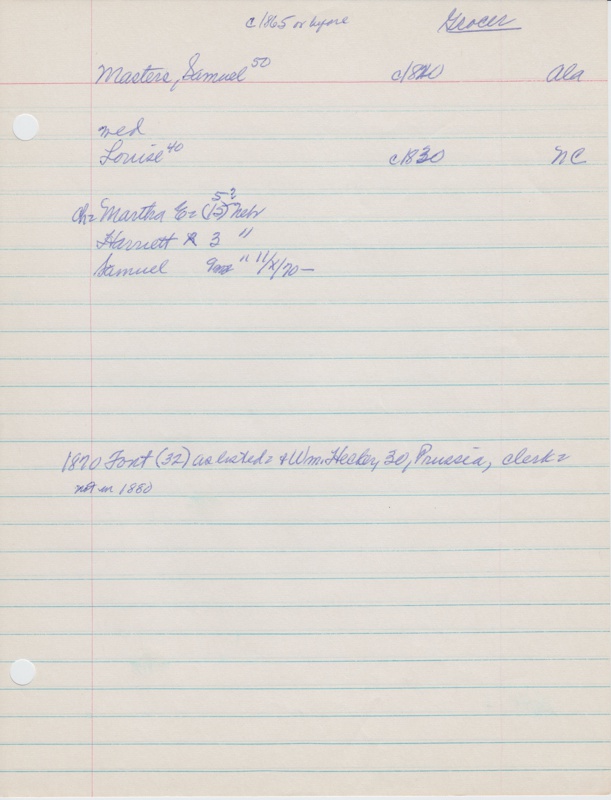 c1865 or before Grocer
Masters, Samuel 50 c1820 Ala
wed
Louise 40 c1830 NC
ch= Martha E= (15) 5? Nebr
Harriett R 3 "
Samuel 9m " 11/X/70 —
1870 Font (32) as listed= & Wm. Heckey, 30, Prussia, clerk=
not in 1860